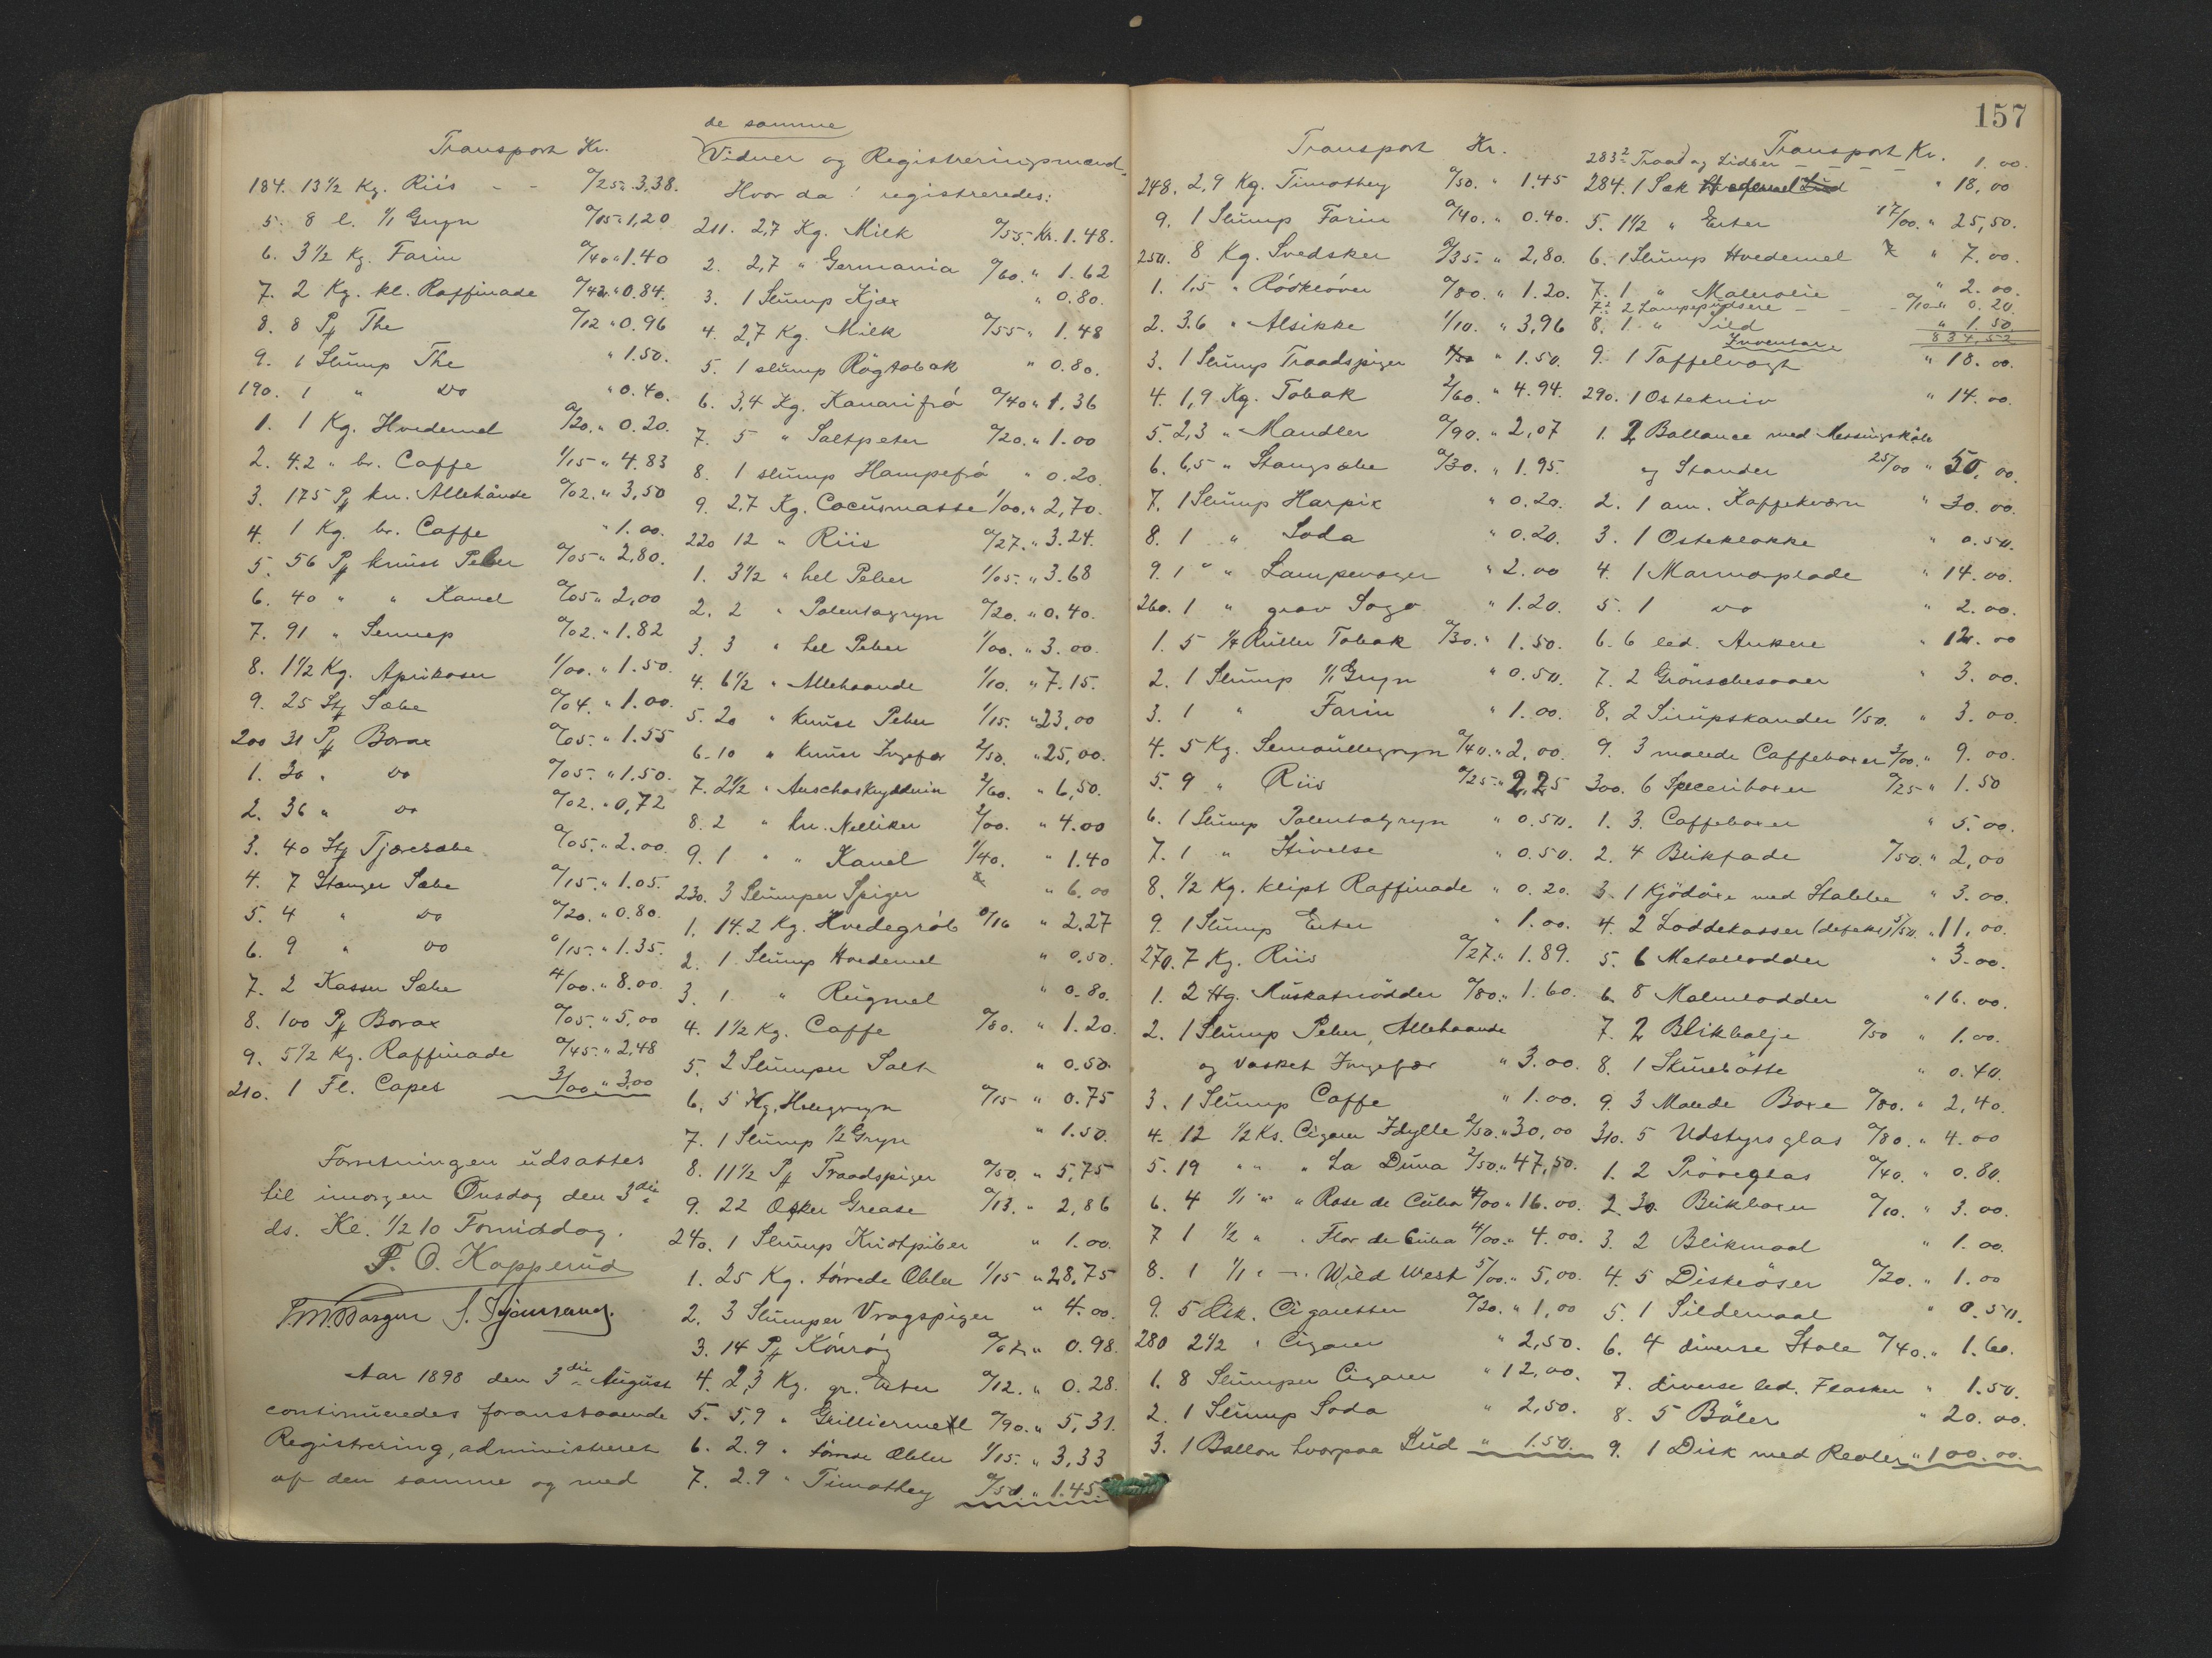 Transport Kr.
184. 13 1/2 Kg. Riis - - a/25 " 3.38.
5. 8 l. 1/1 Gryn a/15 " 1,20
6. 3 1/2 Kg. Farin a/40 " 1.40
7. 2 Kg. kl. Raffinade a/42 " 0.84.
8. 8 Pk The a/12 " 0.96
9. 1 Slump The " 1.50.
190. 1 " Do " 0.40.
1. 1 Kg. Hvedemel a/20. " 0.20.
2. 4.2 " br. Caffe 1/15 " 4.83
3. 175 Pk kn. Allehånde a/02. " 3,50
4. 1 Kg. br. Caffe " 1.00.
5. 56 Pk knust Peber a/05 " 2,80.
6. 40 " " Kanel a/05 " 2,00
7. 91 " Sennep a/02. " 1.82
8. 1 1/2 Kg. Aprikoser 1/00. " 1.50.
9. 25 Stk Sæbe a/04. " 1.00.
200 31 Pk Borax a/05. " 1.55
1. 30 " Do a/05. " 1.50.
2. 36 " Do a/02. " 0,72
3. 40 Stk Tjæresæbe a/05. " 2.00.
4. 7 Stænger Sæbe a/15. " 1.05.
5. 4 " Do a/20. " 0.80.
6. 9 " Do a/15. " 1.35.
7. 2 Kasser Sæbe 4/00. " 8.00.
8. 100 Pk Borax a/05. " 5,00
9. 5 1/2 Kg. Raffinade a/45. " 2,48
210. 1 Fl. Capes 3/00 " 3,00
Forretningen udsattes
til imorgen Onsdag den 3die
ds. Kl. 1/2 10 Formiddag.
F. O. Kopperud
Aar 1898 den 3die August
continueredes foranstaaende
Registrering, administreret
af den samme og med
de samme
Vidner og Registreringsmænd.
Hvor da registreredes:
211. 2,7 Kg. Milk a/55. Kr. 1.48.
2. 2,7 " Germania a/60. " 1.62
3. 1 Slump Kjæx " 0.80.
4. 2,7 Kg. Milk a/55 " 1.48
5. 1 slump Røgtobak " 0.80.
6. 3,4 Kg. Kanarifrø a/40 " 1.36
7. 5 " Saltpeter a/20. " 1.00
8. 1 slump Hampefrø " 0.20.
9. 2.7 Kg. Cocusmasse 1/00. " 2,70.
220 12 " Riis a/27. " 3.24.
1. 3 1/2 " hel Peber 1/05. " 3.68
2. 2 " Polentagryn a/20. " 0.40.
3. 3 " hel Peber 1/00. " 3.00.
4. 6 1/2 " Allehaande 1/10. " 7.15.
5. 20 " knust Peber 1/15. " 23,00
6. 10 " knust Ingefær 2/50. " 25,00.
7. 2 1/2 " 2/60. " 6,50.
8. 2 " kn. Nelliker 2/00. " 4.00
9. 1 " " Kanel 1/40. " 1.40
230. 3 Slumper Spiger " 6.00
1. 14.2 Kg. Hvedegröb a/16 " 2.27
2. 1 Slump Hvedemel " 0.50.
3. 1 " Rugmel " 0.80.
4. 1 1/2 Kg. Caffe a/80. " 1.20.
5. 2 Slumper Salt " 0.50.
6. 5 Kg. Helegryn a/15 " 0.75
7. 1 Slump 1/2 Gryn " 1.50.
8. 11 1/2 Pk Traadspiger a/50. " 5,75
9. 22 Æsker Grease a/13. " 2,86
240. 1 Slump Kridtpiber " 1.00.
1. 25 Kg. tørrede Æbler 1/15 " 28,75
2. 3 Slumper Vragspiger " 4.00.
3. 14 Pk Kønrøg a/07 " 0.98.
4. 2,3 Kg. gr. Erter a/12. " 0.28.
5. 5,9 " a/90. " 5,31.
6. 2.9 " tørrede Æbler 1/15. " 3,33
7. 2.9 " Timothey a/50. " 1.45.
157
Transport Kr.
248. 2,9 Kg. Timothey a/50. " 1.45
9. 1 Slump Farin a/40. " 0.40.
250. 8 Kg. Svedsker a/35. " 2,80.
1. 1,5 " Rödkløver a/80. " 1.20.
2. 3.6 " Alsikke 1/10. " 3,96
3. 1 Slump Traadspiger " 1.50.
4. 1,9 Kg. Tobak 2/60. " 4.94.
5. 2,3 " Mandler a/90. " 2,07
6. 6,5 " Stangsæbe a/30. " 1.95.
7. 1 Slump Harpix " 0.20.
8. 1 " Soda " 0.20.
9. 1 " " Lampevæger " 2.00
260. 1 " grov Sago " 1.20.
1. 5 1/4 Ruller Tobak a/30. " 1.50.
2. 1 Slump 1/1 Gryn " 0.50.
3. 1 " Farin " 1.00.
4. 5 Kg. Semoullegryn a/40. " 2,00.
5. 9 " Riis a/25. " 2,25
6. 1 Slump Polentagryn " 0.50.
7. 1 " Stivelse " 0.50.
8. 1/2 Kg. klipt Raffinade " 0.20.
9. 1 Slump Erter " 1.00.
270. 7 Kg. Riis a/27. " 1.89.
1. 2 Hg. Muskatnödder a/80. " 1.60.
2. 1 Slump Peber, Allehaande
og vasket Ingefær " 3.00.
3. 1 Slump Caffe " 1.00.
4. 12 1/2 Ks. Cigarer Idylle 2/50. " 30,00
5. 19 " " " La Duna 2/50. " 47,50.
6. 4 1/1 " " Rosa de Cuba 4/00 " 16.00.
7 1 1/2 " " Flor de Cuba 4/00. " 4.00.
8. 1 1/1 " - " Wild West 5/00. " 5,00.
9. 5 Æsk. Cigaretter a/20. " 1,00
280 2 1/2 " Cigarer " 2,50.
1. 8 Slumper Cigarer " 12,00.
2. 1 Slump Soda " 2,50.
3. 1 Ballon hvorpaa Lud " 1.50.
Transport Kr.
283 2 Traad og Lidser - - - 1.00.
284. 1 Sæk " 18,00
5. 1 1/2 " Erter 17/00. " 25,50.
6. 1 Slump Hvedemel " 7.00.
7. 1 " Malerolie " 2.00.
7 2 2 Lampepudsere - - - a/10 " 0.20
8. 1 " Sild " 1.50
834,52
Inventar
9. 1 Taffelvægt " 18.00.
290. 1 Ostekniv " 14.00.
1. 2 Ballance med Messingskåle
og Stander 25/00 " 50.00.
2. 1 am. Kaffekværn " 30.00.
3. 1 Osteklokke " 0.50.
4. 1 Marmorplade " 14.00.
5. 1 Do " 2.00.
6. 6 led. Ankere " 12.00
7. 2 Grönsæbesaaer " 3.00.
8. 2 Sirupskander 1/50. " 3.00.
9. 3 malede Caffeboxer 3/00. " 9.00.
300. 6 Speceriboxer a/25 " 1.50
1. 3. Caffeboxer " 5.00.
2. 4 Blikfade a/50. " 2,00
3. 1 Kjödöxe med Stabbe " 3.00.
4. 2 Loddekasser (defekt) 5/50. " 11,00.
5. 6 Metallodder " 3.00.
6. 8 Malmlodder " 16.00.
7. 2 Blikbalje a/50 " 1.00.
8. 1 Skurebötte " 0.40.
9. 3 Malede Boxe a/80. " 2,40.
310. 5 Udstyrsglas a/80. " 4.00
1. 2 Pröveglas a/40. " 0.80.
2. 30. Blikboxer a/10. " 3.00.
3. 2 Blikmaal " 1.00.
4. 5 Diskeöser a/20. " 1.00
5. 1 Sildemaal " 0.50.
6. 4 diverse Stole a/40. " 1.60.
7. diverse led. Flasker " 1.50.
8. 5 Bøler " 20.00.
9. 1 Disk med Reoler " 100.00.